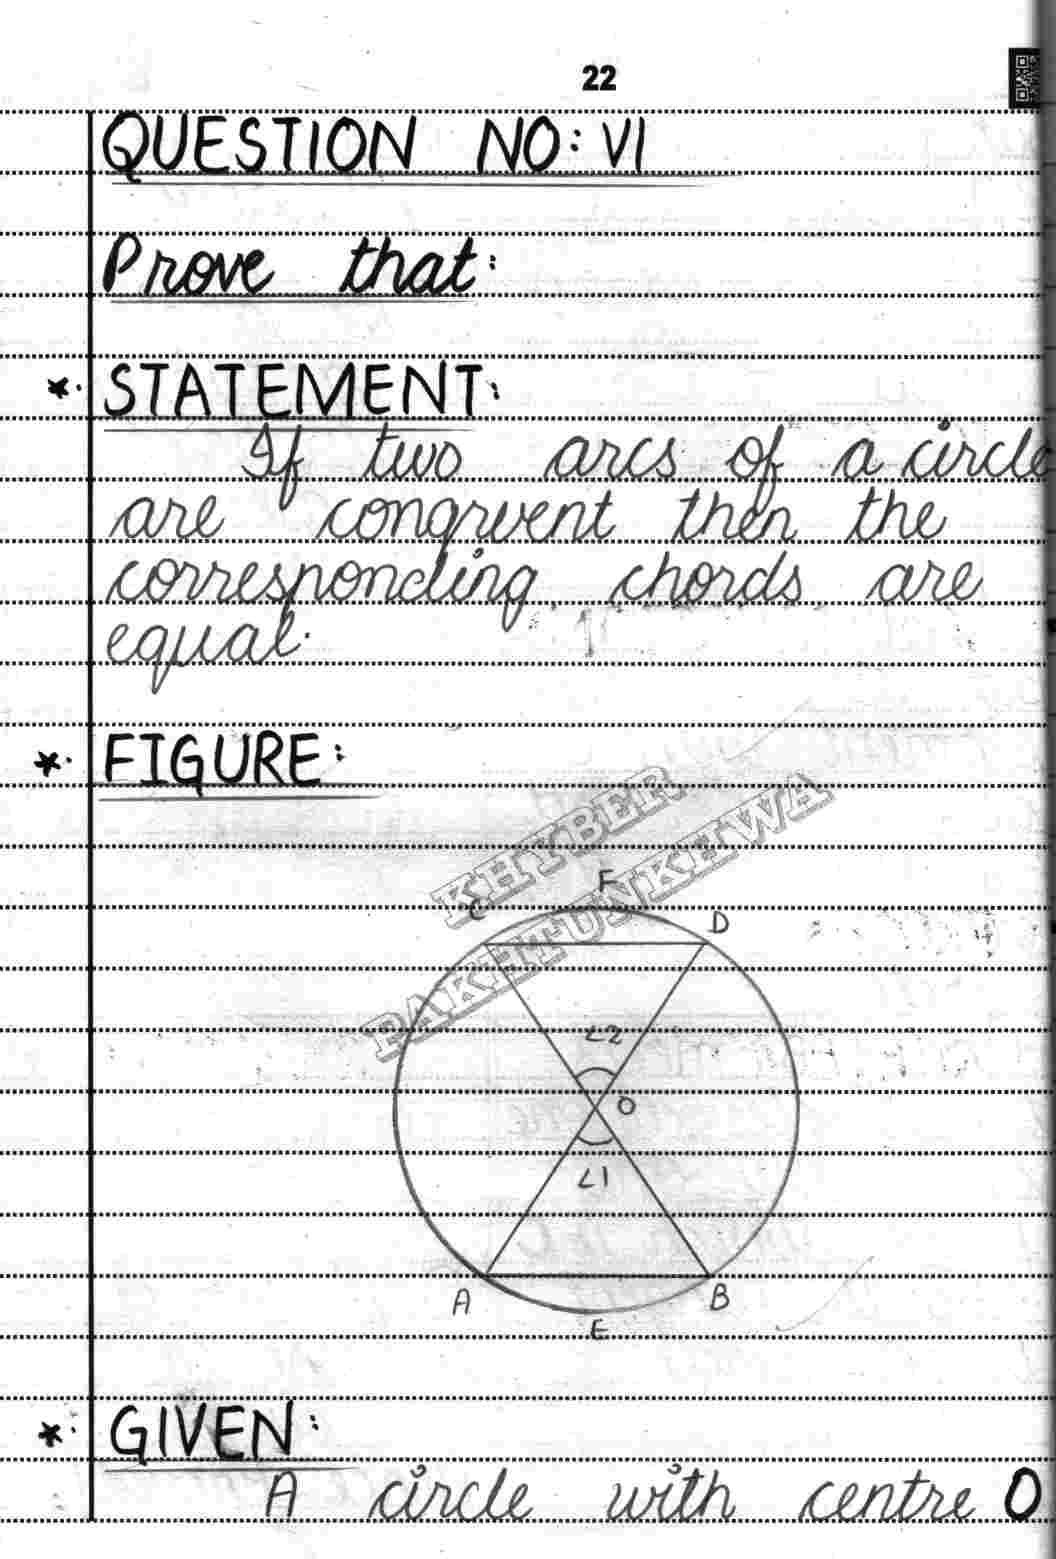 22
QUESTION NO: VI
Prove that:
*. STATEMENT:
If two arcs of a circle
are congruent then the
corresponding chords are
equal.
*. FIGURE:
KHYBER
PAKHTUNKHWA
F
C
D
∠2
O
∠1
A
B
E
*. GIVEN:
A circle with centre O